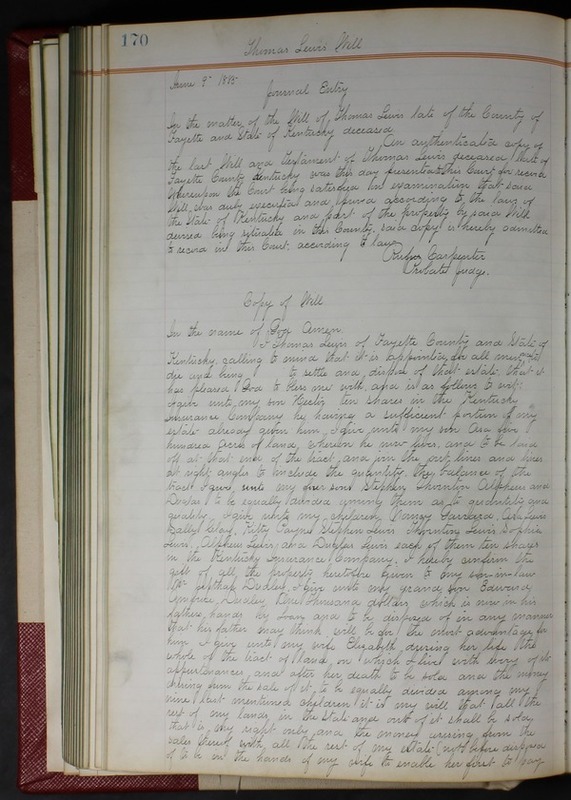 170
Thomas Lewis Will
June 9" 1885
Journal Entry
In the matter of the Will of Thomas Lewis late of the County of
Fayette and State of Kentucky deceased
An authenticated copy of
the last Will and Testament of Thomas Lewis deceased, late of
Fayette County Kentucky was this day presented to this Court for record
Whereupon the Court being satisfied on examination that said
Will was duly executed and proved according to the laws of
the State of Kentucky and part of the property by said Will
devised being situated in this County, said copy is hereby admitted
to record in this Court according to law
Carpenter
Probate Judge.
Copy of Will.
In the name of God Amen.
I Thomas Lewis of Fayette County and State of
Kentucky, calling to mind that it is appointed for all men to
die and being to settle and dispose of that estate that it
has pleased God to bless me with, and is as follows to wit:
I give unto my son Hector ten shares in the Kentucky
Insurance Company he having a sufficient portion of my
estate already given him, I give unto my son Asa five
hundred acres of land, whereon he now lives, and to be laid
off at that end of the tract, and join the out lines and lines
at right angles to include the quantity. The balance of the
tract I give unto my four sons Stephen Thornton Alpheus and
Douglas to be equally divided among them as to quantity and
quality. I give unto my children Asa Lewis
Sally Clay, Kitty Payne Stephen Lewis Thornton Lewis Sophia
Lewis, Alpheus Lewis, and Douglas Lewis each of them ten shares
in the Kentucky Insurance Company. I hereby confirm the
gift of all the property heretofore given to my son-in-law
Dudley, I give unto my grand son Edward
Dudley, Thousand dollars which is now in his
fathers hands by loan and to be disposed of in any manner
that his father may think will be for the most advantage for
him. I give unto my wife Elizabeth during her life the
whole of the tract of land on which I live with every of its
appurtenances and after her death to be sold and the money
arising from the sale of it to be equally divided among my
nine last mentioned children it is my will that all the
rest of my lands in the State and out of it shall be sold
that is my right only and the money arising from the
sales thereof with all the rest of my estate (not before disposed
of to be in the hands of my wife to enable her first to pay